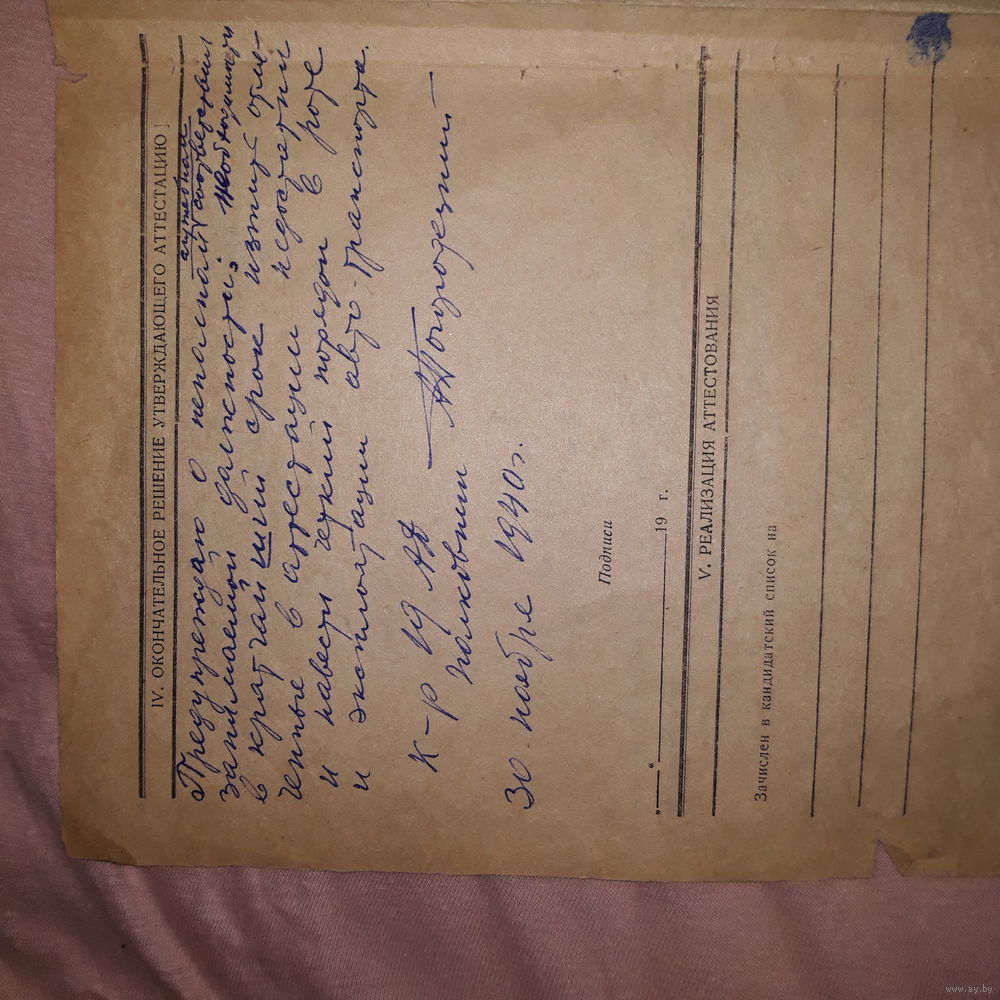 IV. ОКОНЧАТЕЛЬНОЕ РЕШЕНИЕ УТВЕРЖДАЮЩЕГО АТТЕСТАЦИЮ
служебном
Предупреждаю о неполном соответствии
занимаемой должности, необходимо
в кратчайший срок изжить отме-
ченные в аттестации недостатки
и навести четкий порядок в роте
и эксплоатации авто-транспорта.
К-р 19 АД
полковник
30 ноября 1940 г.
Подписи
„ “ 19 г.
V. РЕАЛИЗАЦИЯ АТТЕСТОВАНИЯ
Зачислен в кандидатский список на
www.ay.by